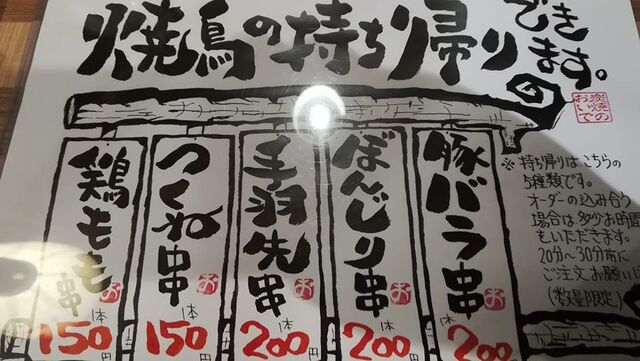 焼鳥の持ち帰り
できます。
豚バラ串
1本
200円
ぼんじり串
1本
200円
手羽先串
1本
200円
つくね串
1本
150円
鶏もも串
1本
150円
※持ち帰りはこちらの
5種類です。
オーダーの込み合う
場合は多少お時間
をいただきます。
20分〜30分前に
ご注文お願い
(数量限定)